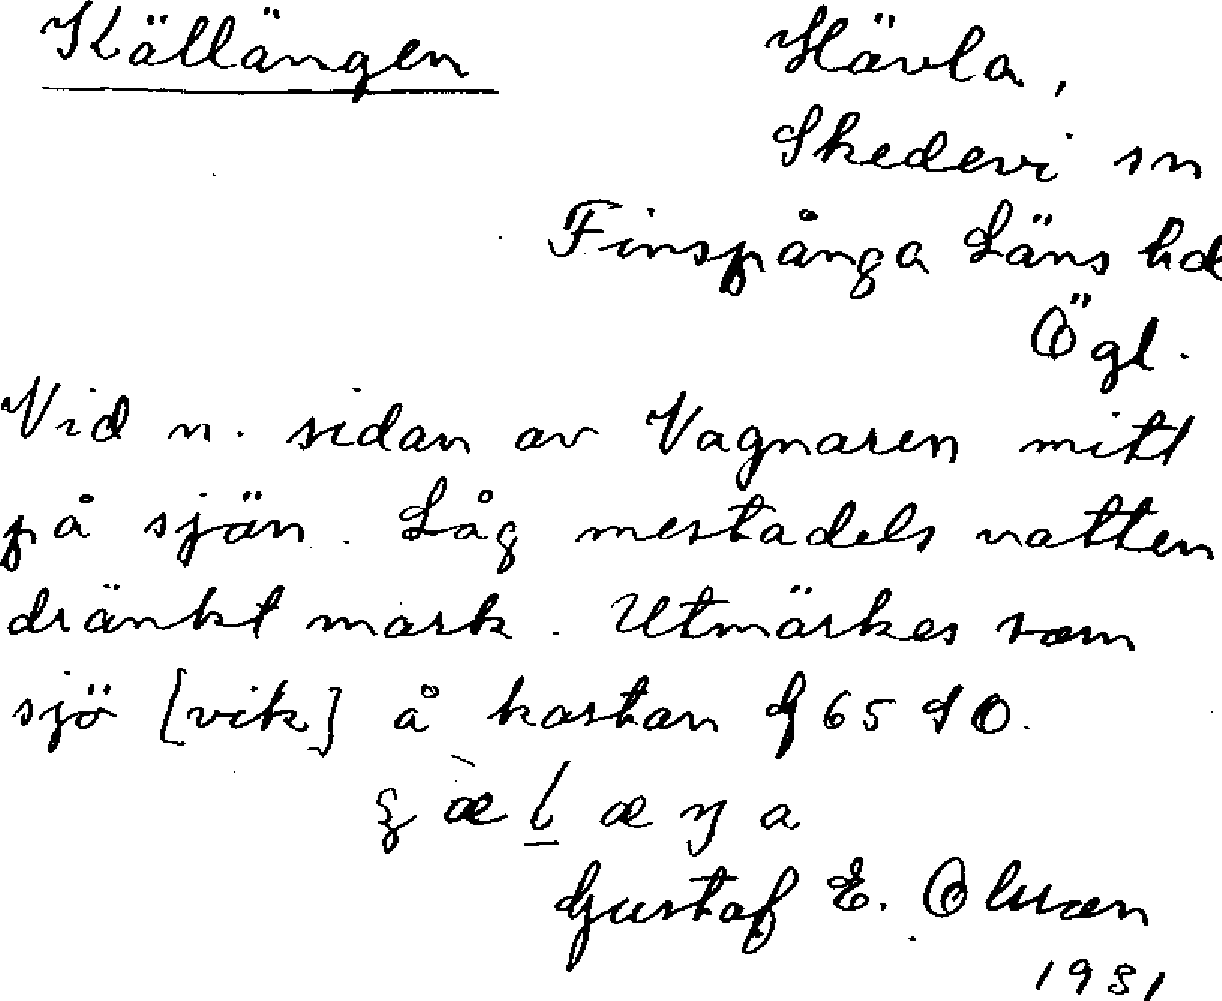 Källängen
Hävla,
Skedevi sn
Finspånga Läns hd
Ögl.
Vid n. sidan av Vagnaren mitt
på sjön. Låg mestadels vatten
dränkt mark. Utmärkes som
sjö [vik] å kartan
Gustaf E. Olsson
1931